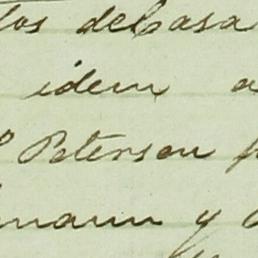 los de Casa
idem a
Peterson
mann y